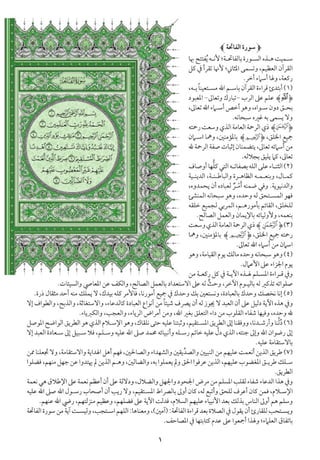 ﴿ سورة الفاتحة ﴾
سميت هذه السورة بالفاتحة؛ لأنه يُفتتح بها
القرآن العظيم، وتسمى المثاني؛ لأنها تقرأ في كل
ركعة، ولها أسماء أخر.
(١) أبتدئ قراءة القرآن باسم الله مستعينًا به،
﴿اللَّهِ﴾ علم على الرب -تبارك وتعالى- المعبود
بحق دون سواه، وهو أخص أسماء الله تعالى،
ولا يسمى به غيره سبحانه.
﴿الرَّحْمَنِ﴾ ذي الرحمة العامة الذي وسعت رحمته
جميع الخلق، ﴿الرَّحِيمِ﴾ بالمؤمنين، وهما اسمان
من أسمائه تعالى، يتضمنان إثبات صفة الرحمة لله
تعالى، كما يليق بجلاله.
(٢) الثناء على الله بصفاته التي كلُّها أوصاف
كمال، وبنعمه الظاهرة والباطنة، الدينية
والدنيوية. وفي ضمنه أَمْرٌ لعباده أن يحمدوه،
فهو المستحق له وحده، وهو سبحانه المنشئ
للخلق، القائم بأمورهم، المربي لجميع خلقه
بنعمه، ولأوليائه بالإيمان والعمل الصالح.
(٣) ﴿الرَّحْمَنِ﴾ ذي الرحمة العامة الذي وسعت
رحمته جميع الخلق، ﴿الرَّحِيمِ﴾ بالمؤمنين، وهما
اسمان من أسماء الله تعالى.
(٤) وهو سبحانه وحده مالك يوم القيامة، وهو
يوم الجزاء على الأعمال.
وفي قراءة المسلم لهذه الآية في كل ركعة من
صلواته تذكير له باليوم الآخر، وحثٌّ له على الاستعداد بالعمل الصالح، والكف عن المعاصي والسيئات.
(٥) إنا نخصك وحدك بالعبادة، ونستعين بك وحدك في جميع أمورنا، فالأمر كله بيدك، لا يملك منه أحد مثقال ذرة.
وفي هذه الآية دليل على أن العبد لا يجوز له أن يصرف شيئًا من أنواع العبادة كالدعاء والاستغاثة والذبح والطواف إلا
لله وحده، وفيها شفاء القلوب من داء التعلق بغير الله، ومن أمراض الرياء، والعجب، والكبرياء.
(٦) دُلَّنا وأرشدنا، ووفقنا إلى الطريق المستقيم، وثبتنا عليه حتى نلقاك، وهو الإسلام الذي هو الطريق الواضح الموصل
إلى رضوان الله وإلى جنته، الذي دلَّ عليه خاتم رسله وأنبيائه محمد صلى الله عليه وسلم، فلا سبيل إلى سعادة العبد إلا
بالاستقامة عليه.
(٧) طريق الذين أنعمت عليهم من النبيين والصدِّيقين والشهداء والصالحين، فهم أهل الهداية والاستقامة، ولا تجعلنا ممن
سلك طريق المغضوب عليهم، الذين عرفوا الحق ولم يعملوا به، والضالين، وهم الذين لم يهتدوا عن جهل منهم، فضلوا
الطريق.
وفي هذا الدعاء شفاء لقلب المسلم من مرض الجحود والجهل والضلال، ودلالة على أن أعظم نعمة على الإطلاق هي نعمة
الإسلام، فمن كان أعرف للحق وأتبع له، كان أولى بالصراط المستقيم، ولا ريب أن أصحاب رسول الله صلى الله عليه
وسلم هم أولى الناس بذلك بعد الأنبياء عليهم السلام، فدلت الآية على فضلهم، وعظيم منزلتهم، رضي الله عنهم.
ويستحب للقارئ أن يقول في الصلاة بعد قراءة الفاتحة: (آمين)، ومعناها: اللهم استجب، وليست آية من سورة الفاتحة
باتفاق العلماء؛ ولهذا أجمعوا على عدم كتابتها في المصاحف.
١